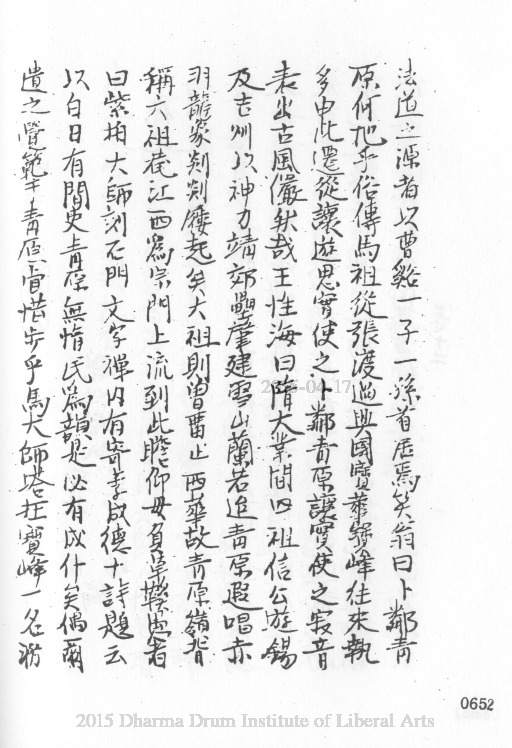 法道之源者以曹谿一子一孫首居焉矣翁曰卜鄰青
原何地乎俗傳馬祖從張渡過興國寶華峰往來執
多由此遷從讓遊思實使之卜鄰青原讓實使之寂音
表出古風儼然哉王性海曰隋大業間四祖信公遊錫
及吉州以神力靖郊壘肇建雪山蘭若追青原遐唱亦
羽龍象剡剡屨起矣大祖則曾留止西華故青原嶺背
稱六祖菴江西為宗門上流到此瞻仰毋負草鞋忠者
曰紫柏大師刻石門文字禪內有寄李成德十詩題云
以白日有閒吏青原無惰民為韻是必有成什矣偶爾
遺之覺範于青原實惜步乎馬大師塔在寶峰一名泐
0652
2015 Dharma Drum Institute of Liberal Arts